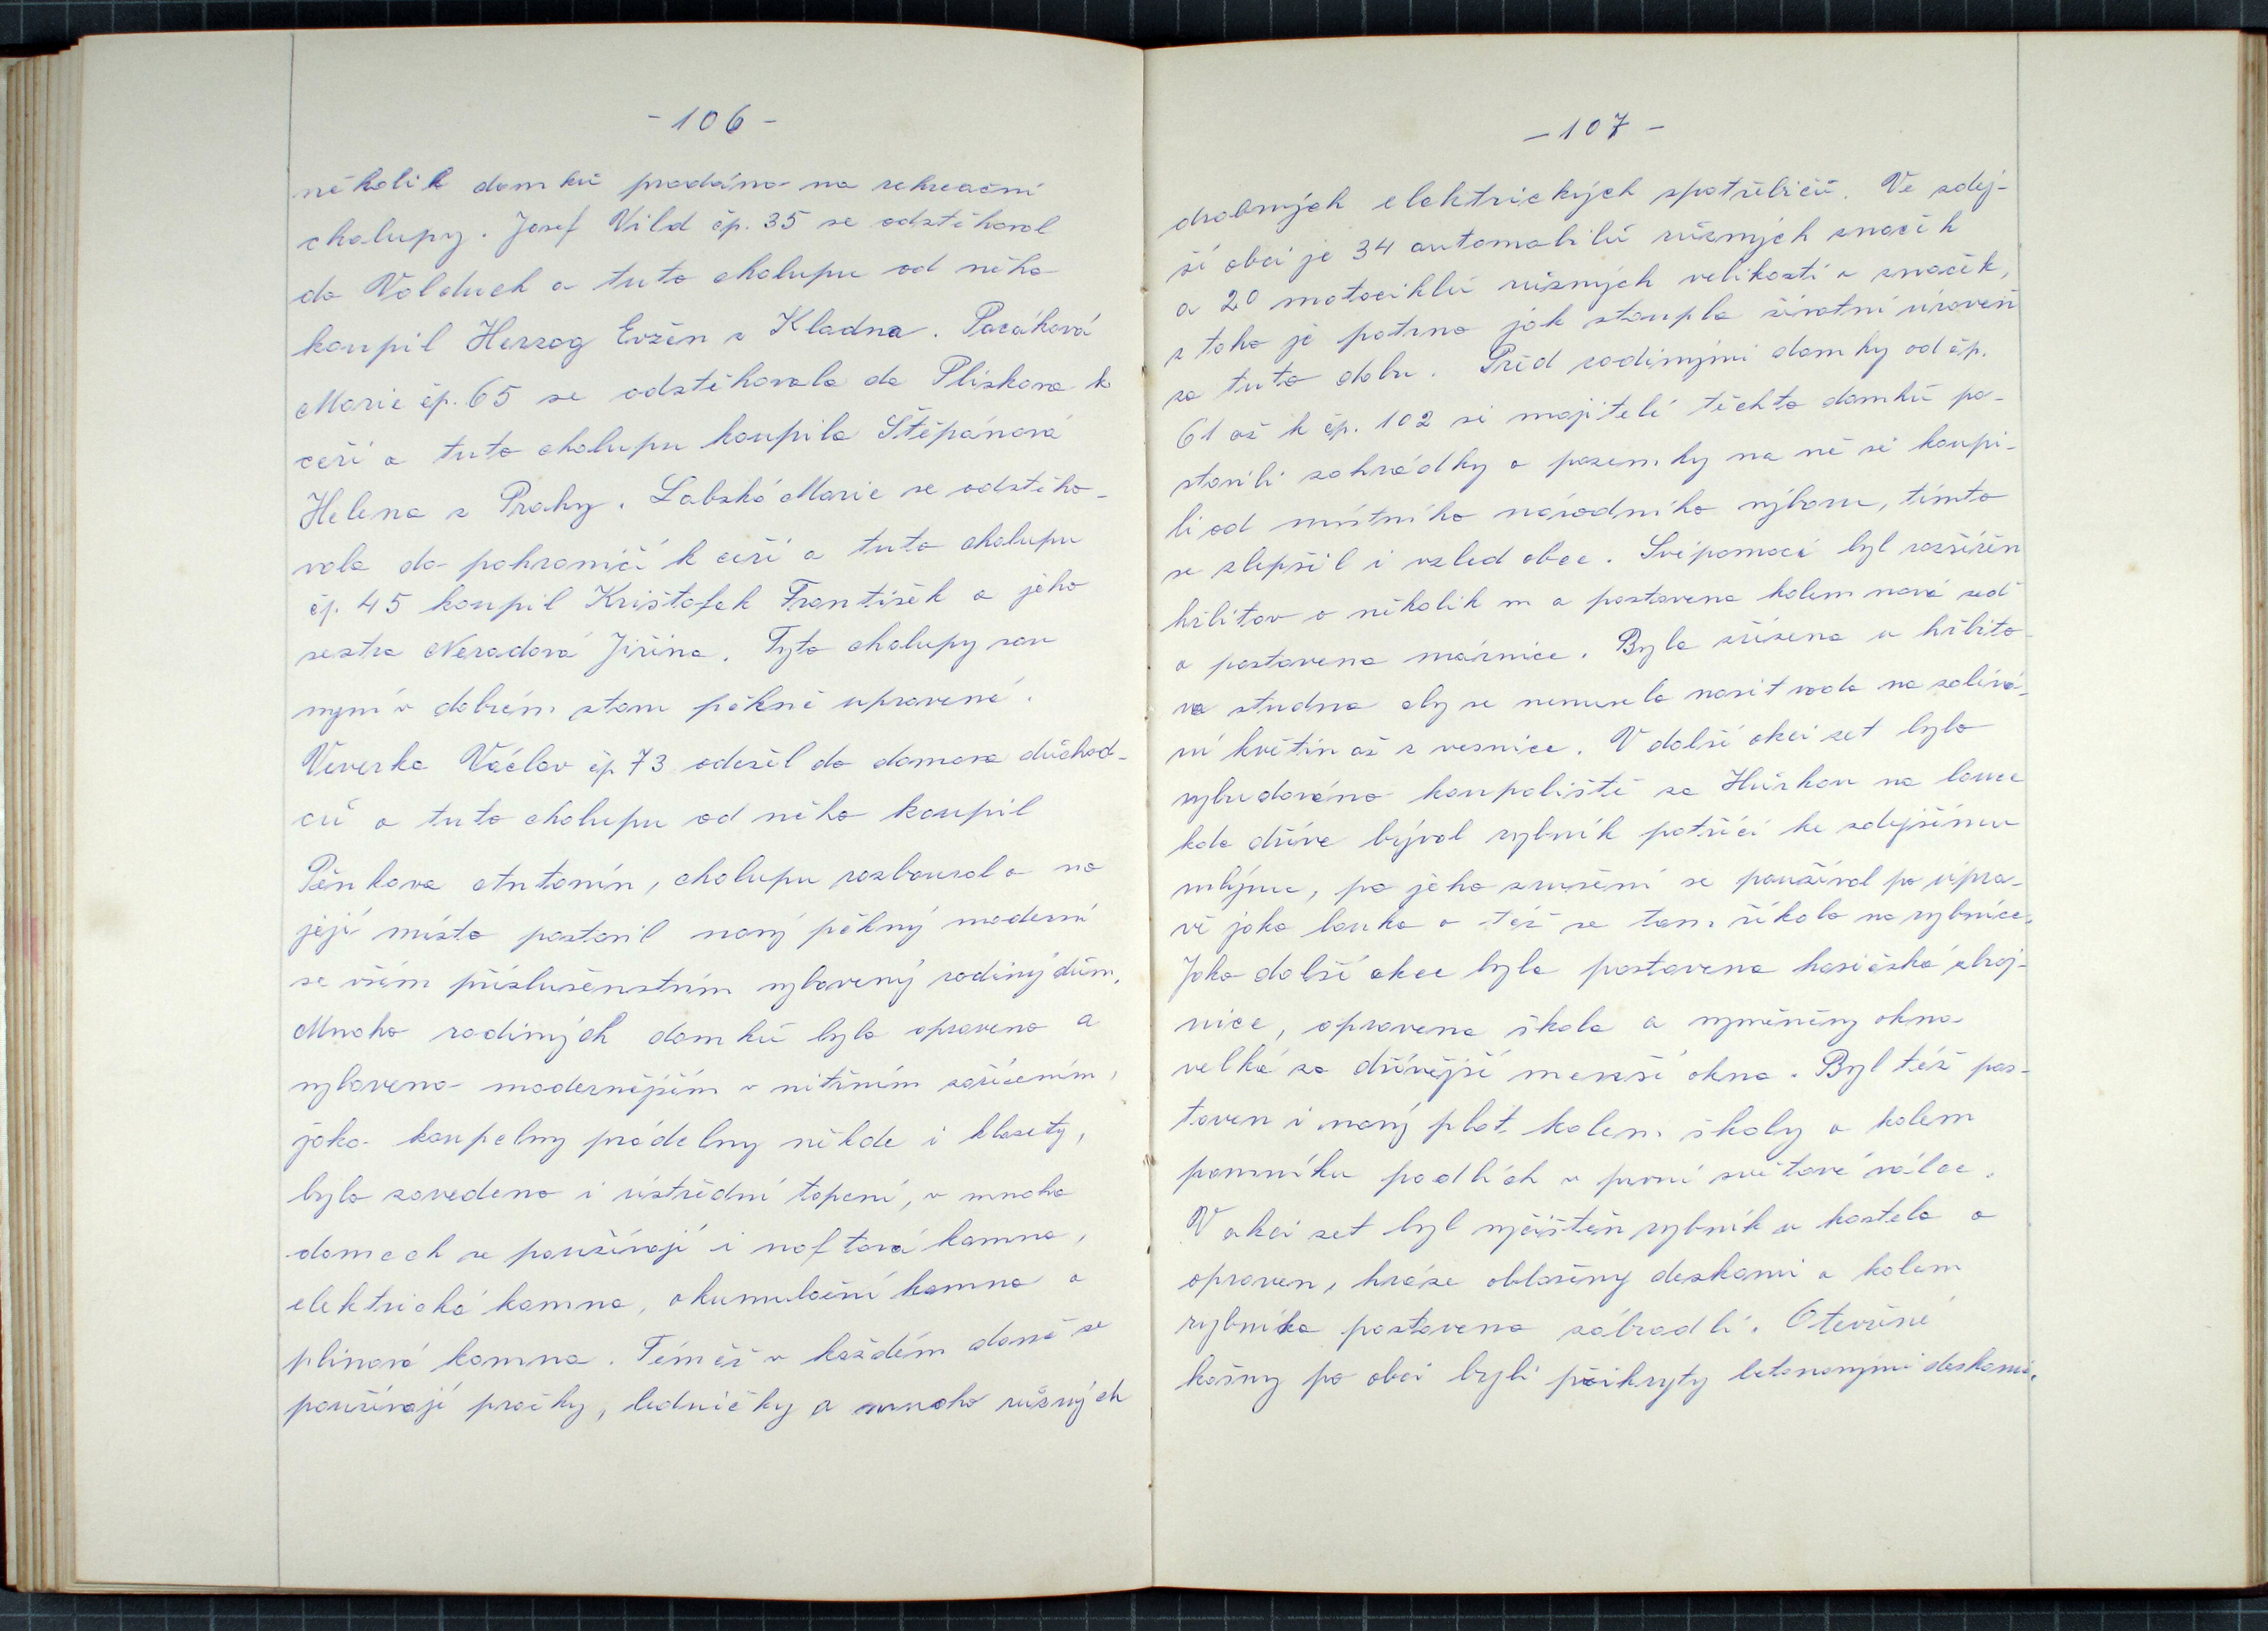 - 106 -
několik domků prodáno na rekreační
chalupy. Josef Vild čp. 35 se odstěhoval
do Volduch a tuto chalupu od něho
koupil Herzog Evžen z Kladna. Pacáková
Marie čp. 65 se odstěhovala do Plískova k
ceři a tuto chalupu koupila Štěpánová
Helena z Prahy. Labská Marie se odstěho-
vala do pohraničí k ceři a tuto chalupu
čp. 45 koupil Krištofek František a jeho
sestra Neradová Jiřina. Tyto chalupy sou
nyní v dobrém stavu pěkně upravené.
Veverka Václav čp 73 odešel do domova důchod-
ců a tuto chalupu od něho koupil
Pěnkava Antonín, chalupu rozboural a na
její místo postavil nový pěkný moderní
se vším příslušenstvím vybavený rodiný dům.
Mnoho rodiných domků bylo opraveno a
vybaveno modernějším v nitřním zařízením,
jako koupelny prádelny někde i klosety,
bylo zavedeno i ústřední topení, v mnoha
domech se používají i naftová kamna,
elektrická kamna, akumulační kamna a
plinová kamna. Téměř v každém domě se
používají pračky, ledničky a mnoho různých
- 107 -
drobných elektrických spotřebičů. Ve zdej-
ší obci je 34 automobilů různých značek
a 20 motociklů různých velikostí a značek,
z toho je patrno jak stoupla životní úroveň
za tuto dobu. Před rodinými domky od čp.
61 až k čp. 102 si majitelé těchto domků po-
stavili zahrádky a pozemky na ně si koupi-
li od místního národního výboru, tímto
se zlepšil i vzled obce. Svépomocí byl rozšířen
hřbitov o několik m a postavena kolem nová zeď
a postavena márnice. Byla zřízena u hřbito-
va studna aby se nemusela nosit voda na zalévá-
ní květin až z vesnice. V další akci zet bylo
vybudováno koupaliště za Hůrkou na louce
kde dříve býval rybník patřící ke zdejšímu
mlýnu, po jeho zrušení se používal po úpra-
vě jako louka a též se tam říkalo na rybníce.
Jako další akce byla postavena hasičská zbroj-
nice, opravena škola a vyměněny okna
velká za dřívější menší okna. Byl též pos-
taven i nový plot kolem školy a kolem
pomníku padlích v první světové válce.
V akci zet byl vyčištěn rybník u kostela a
opraven, hráze obloženy deskami a kolem
rybníka postaveno zábradlí. Otevřené
kašny po obci byli přikryty betonovými deskami.